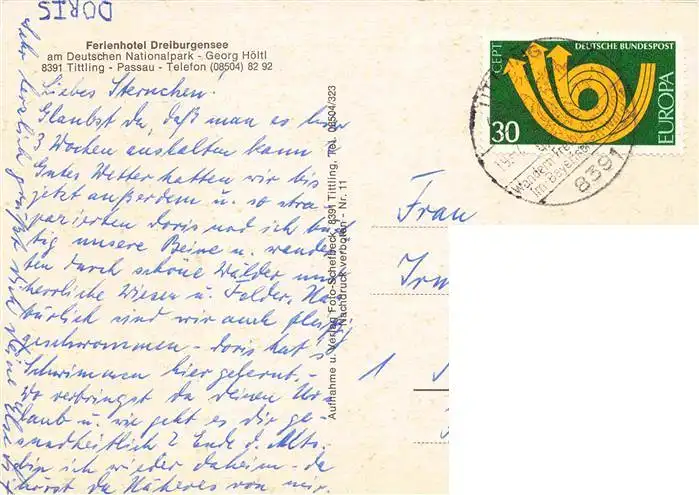 DORIS
Ferienhotel Dreiburgensee
am Deutschen Nationalpark - Georg Höltl
8391 Tittling - Passau - Telefon (08504) 82 92
Liebes Sternchen.
Glaubst du, daß man es hier
3 Wochen aushalten kann?
Gutes Wetter hatten wir bis
jetzt außerdem u. so stra-
pazierten doris und ich
tig unsere Beine u. wander
ten durch schöne Wälder und
herrliche Wiesen u. Felder. Na-
türlich sind wir auch
geschwommen - doris hat's
Schwimmen hier gelernt -
Wo verbringst du deinen Ur-
laub u. wie geht es dir ge-
sundheitlich? Ende d. Mts.
bin ich wieder daheim - da
hörst du Näheres von mir.
Sehr herzlich grüßt dich deine
Aufnahme u. Verlag Foto-Schefbeck, 8391 Tittling, Tel. 08504/323
Nachdruck verboten - Nr. 11
CEPT
DEUTSCHE BUNDESPOST
EUROPA
30
TITTLING
Wandern
Im Bayerischen
8391
Frau
1